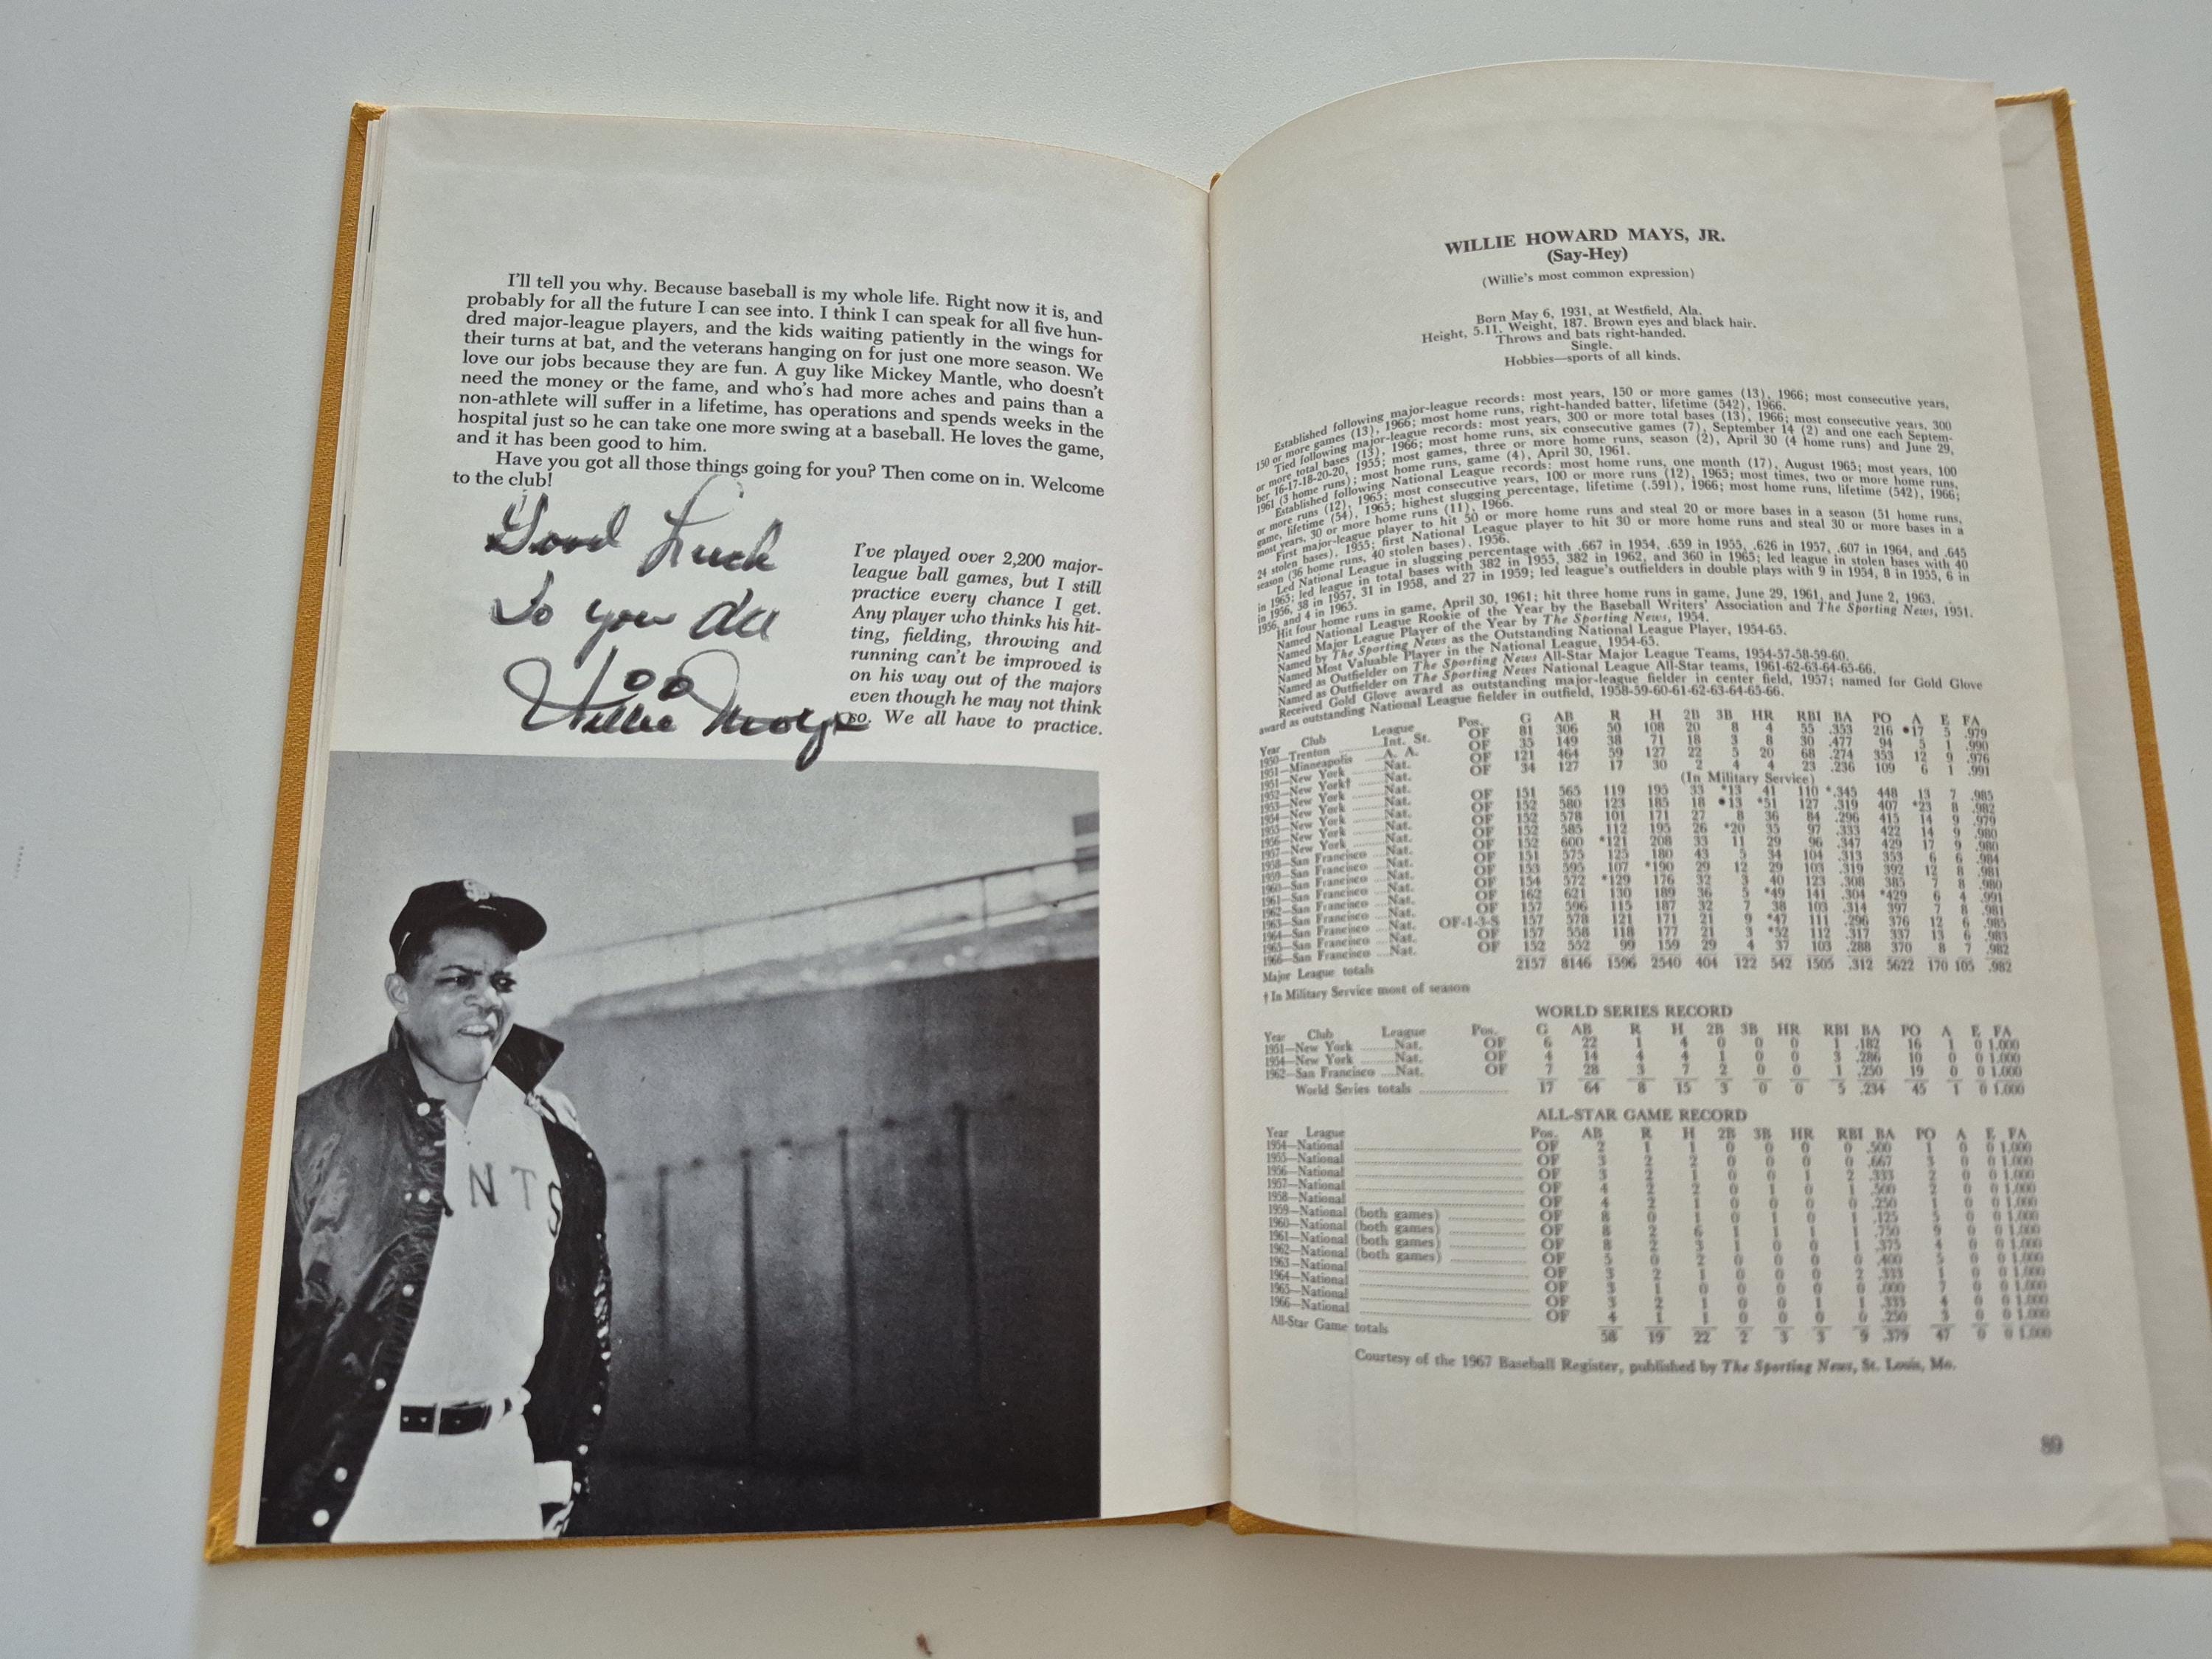 I'll tell you why. Because baseball is my whole life. Right now it is, and
probably for all the future I can see into. I think I can speak for all five hun-
dred major-league players, and the kids waiting patiently in the wings for
their turns at bat, and the veterans hanging on for just one more season. We
love our jobs because they are fun. A guy like Mickey Mantle, who doesn't
need the money or the fame, and who's had more aches and pains than a
non-athlete will suffer in a lifetime, has operations and spends weeks in the
hospital just so he can take one more swing at a baseball. He loves the game,
and it has been good to him.
Have you got all those things going for you? Then come on in. Welcome
to the club!
Good Luck
To you all
Willie Mays
I've played over 2,200 major-
league ball games, but I still
practice every chance I get.
Any player who thinks his hit-
ting, fielding, throwing and
running can't be improved is
on his way out of the majors
even though he may not think
so. We all have to practice.
ANTS
WILLIE HOWARD MAYS, JR.
(Say-Hey)
(Willie's most common expression)
Born May 6, 1931, at Westfield, Ala.
Height, 5.11. Weight, 187. Brown eyes and black hair.
Throws and bats right-handed.
Single.
Hobbies—sports of all kinds.
Established following major-league records: most years, 150 or more games (13), 1966; most consecutive years,
150 or more games (13), 1966; most home runs, right-handed batter, lifetime (542), 1966.
Tied following major-league records: most years, 300 or more total bases (13), 1966; most consecutive years, 300
or more total bases (13), 1966; most home runs, six consecutive games (7), September 14 (2) and one each Septem-
ber 16-17-18-20-20, 1955; most games, three or more home runs, season (2), April 30 (4 home runs) and June 29,
1961 (3 home runs); most home runs, game (4), April 30, 1961.
Established following National League records: most home runs, one month (17), August 1965; most years, 100
or more runs (12), 1965; most consecutive years, 100 or more runs (12), 1965; most times, two or more home runs,
game, lifetime (54), 1965; highest slugging percentage, lifetime (.591), 1966; most home runs, lifetime (542), 1966;
most years, 30 or more home runs (11), 1966.
First major-league player to hit 50 or more home runs and steal 20 or more bases in a season (51 home runs,
24 stolen bases), 1955; first National League player to hit 30 or more home runs and steal 30 or more bases in a
season (36 home runs, 40 stolen bases), 1956.
Led National League in slugging percentage with .667 in 1954, .659 in 1955, .626 in 1957, .607 in 1964, and .645
in 1965; led league in total bases with 382 in 1955, 382 in 1962, and 360 in 1965; led league in stolen bases with 40
in 1956, 38 in 1957, 31 in 1958, and 27 in 1959; led league's outfielders in double plays with 9 in 1954, 8 in 1955, 6 in
1956, and 4 in 1965.
Hit four home runs in game, April 30, 1961; hit three home runs in game, June 29, 1961, and June 2, 1963.
Named National League Rookie of the Year by the Baseball Writers' Association and The Sporting News, 1951.
Named Major League Player of the Year by The Sporting News, 1954.
Named by The Sporting News as the Outstanding National League Player, 1954-65.
Named Most Valuable Player in the National League, 1954-65.
Named as Outfielder on The Sporting News All-Star Major League Teams, 1954-57-58-59-60.
Named as Outfielder on The Sporting News National League All-Star teams, 1961-62-63-64-65-66.
Received Gold Glove award as outstanding major-league fielder in center field, 1957; named for Gold Glove
award as outstanding National League fielder in outfield, 1958-59-60-61-62-63-64-65-66.
Year Club League Pos. G AB R H 2B 3B HR RBI BA PO A E FA
1950—Trenton Int. St. OF 81 306 50 108 20 8 4 55 .353 216 •17 5 .979
1951—Minneapolis A. A. OF 35 149 38 71 18 3 8 30 .477 94 5 1 .990
1951—New York Nat. OF 121 464 59 127 22 5 20 68 .274 353 12 9 .976
1952—New York† Nat. OF 34 127 17 30 2 4 4 23 .236 109 6 1 .991
1953—New York Nat. (In Military Service)
1954—New York Nat. OF 151 565 119 195 33 *13 41 110 *.345 448 13 7 .985
1955—New York Nat. OF 152 580 123 185 18 •13 *51 127 .319 407 *23 8 .982
1956—New York Nat. OF 152 578 101 171 27 8 36 84 .296 415 14 9 .979
1957—New York Nat. OF 152 585 112 195 26 *20 35 97 .333 422 14 9 .980
1958—San Francisco Nat. OF 152 600 *121 208 33 11 29 96 .347 429 17 9 .980
1959—San Francisco Nat. OF 151 575 125 180 43 5 34 104 .313 353 6 6 .984
1960—San Francisco Nat. OF 153 595 107 *190 29 12 29 103 .319 392 12 8 .981
1961—San Francisco Nat. OF 154 572 *129 176 32 3 40 123 .308 385 7 8 .980
1962—San Francisco Nat. OF 162 621 130 189 36 5 *49 141 .304 *429 6 4 .991
1963—San Francisco Nat. OF 157 596 115 187 32 7 38 103 .314 397 7 8 .981
1964—San Francisco Nat. OF-1-3-S 157 578 121 171 21 9 *47 111 .296 376 12 6 .985
1965—San Francisco Nat. OF 157 558 118 177 21 3 *52 112 .317 337 13 6 .983
1966—San Francisco Nat. OF 152 552 99 159 29 4 37 103 .288 370 8 7 .982
Major League totals 2157 8146 1596 2540 404 122 542 1505 .312 5622 170 105 .982
† In Military Service most of season
WORLD SERIES RECORD
Year Club League Pos. G AB R H 2B 3B HR RBI BA PO A E FA
1951—New York Nat. OF 6 22 1 4 0 0 0 1 .182 16 1 0 1.000
1954—New York Nat. OF 4 14 4 4 1 0 0 3 .286 10 0 0 1.000
1962—San Francisco Nat. OF 7 28 3 7 2 0 0 1 .250 19 0 0 1.000
World Series totals 17 64 8 15 3 0 0 5 .234 45 1 0 1.000
ALL-STAR GAME RECORD
Year League Pos. AB R H 2B 3B HR RBI BA PO A E FA
1954—National OF 2 1 1 0 0 0 0 .500 1 0 0 1.000
1955—National OF 3 2 2 0 0 0 0 .667 3 0 0 1.000
1956—National OF 3 2 1 0 0 1 2 .333 2 0 0 1.000
1957—National OF 4 2 2 0 1 0 1 .500 2 0 0 1.000
1958—National OF 4 2 1 0 0 0 0 .250 1 0 0 1.000
1959—National (both games) OF 8 0 1 0 1 0 1 .125 5 0 0 1.000
1960—National (both games) OF 8 2 6 1 1 1 1 .750 9 0 0 1.000
1961—National (both games) OF 8 2 3 1 0 0 1 .375 4 0 0 1.000
1962—National (both games) OF 5 0 2 0 0 0 0 .400 5 0 0 1.000
1963—National OF 3 2 1 0 0 0 2 .333 1 0 0 1.000
1964—National OF 3 1 0 0 0 0 0 .000 7 0 0 1.000
1965—National OF 3 2 1 0 0 1 1 .333 4 0 0 1.000
1966—National OF 4 1 1 0 0 0 0 .250 3 0 0 1.000
All-Star Game totals 58 19 22 2 3 3 9 .379 47 0 0 1.000
Courtesy of the 1967 Baseball Register, published by The Sporting News, St. Louis, Mo.
89